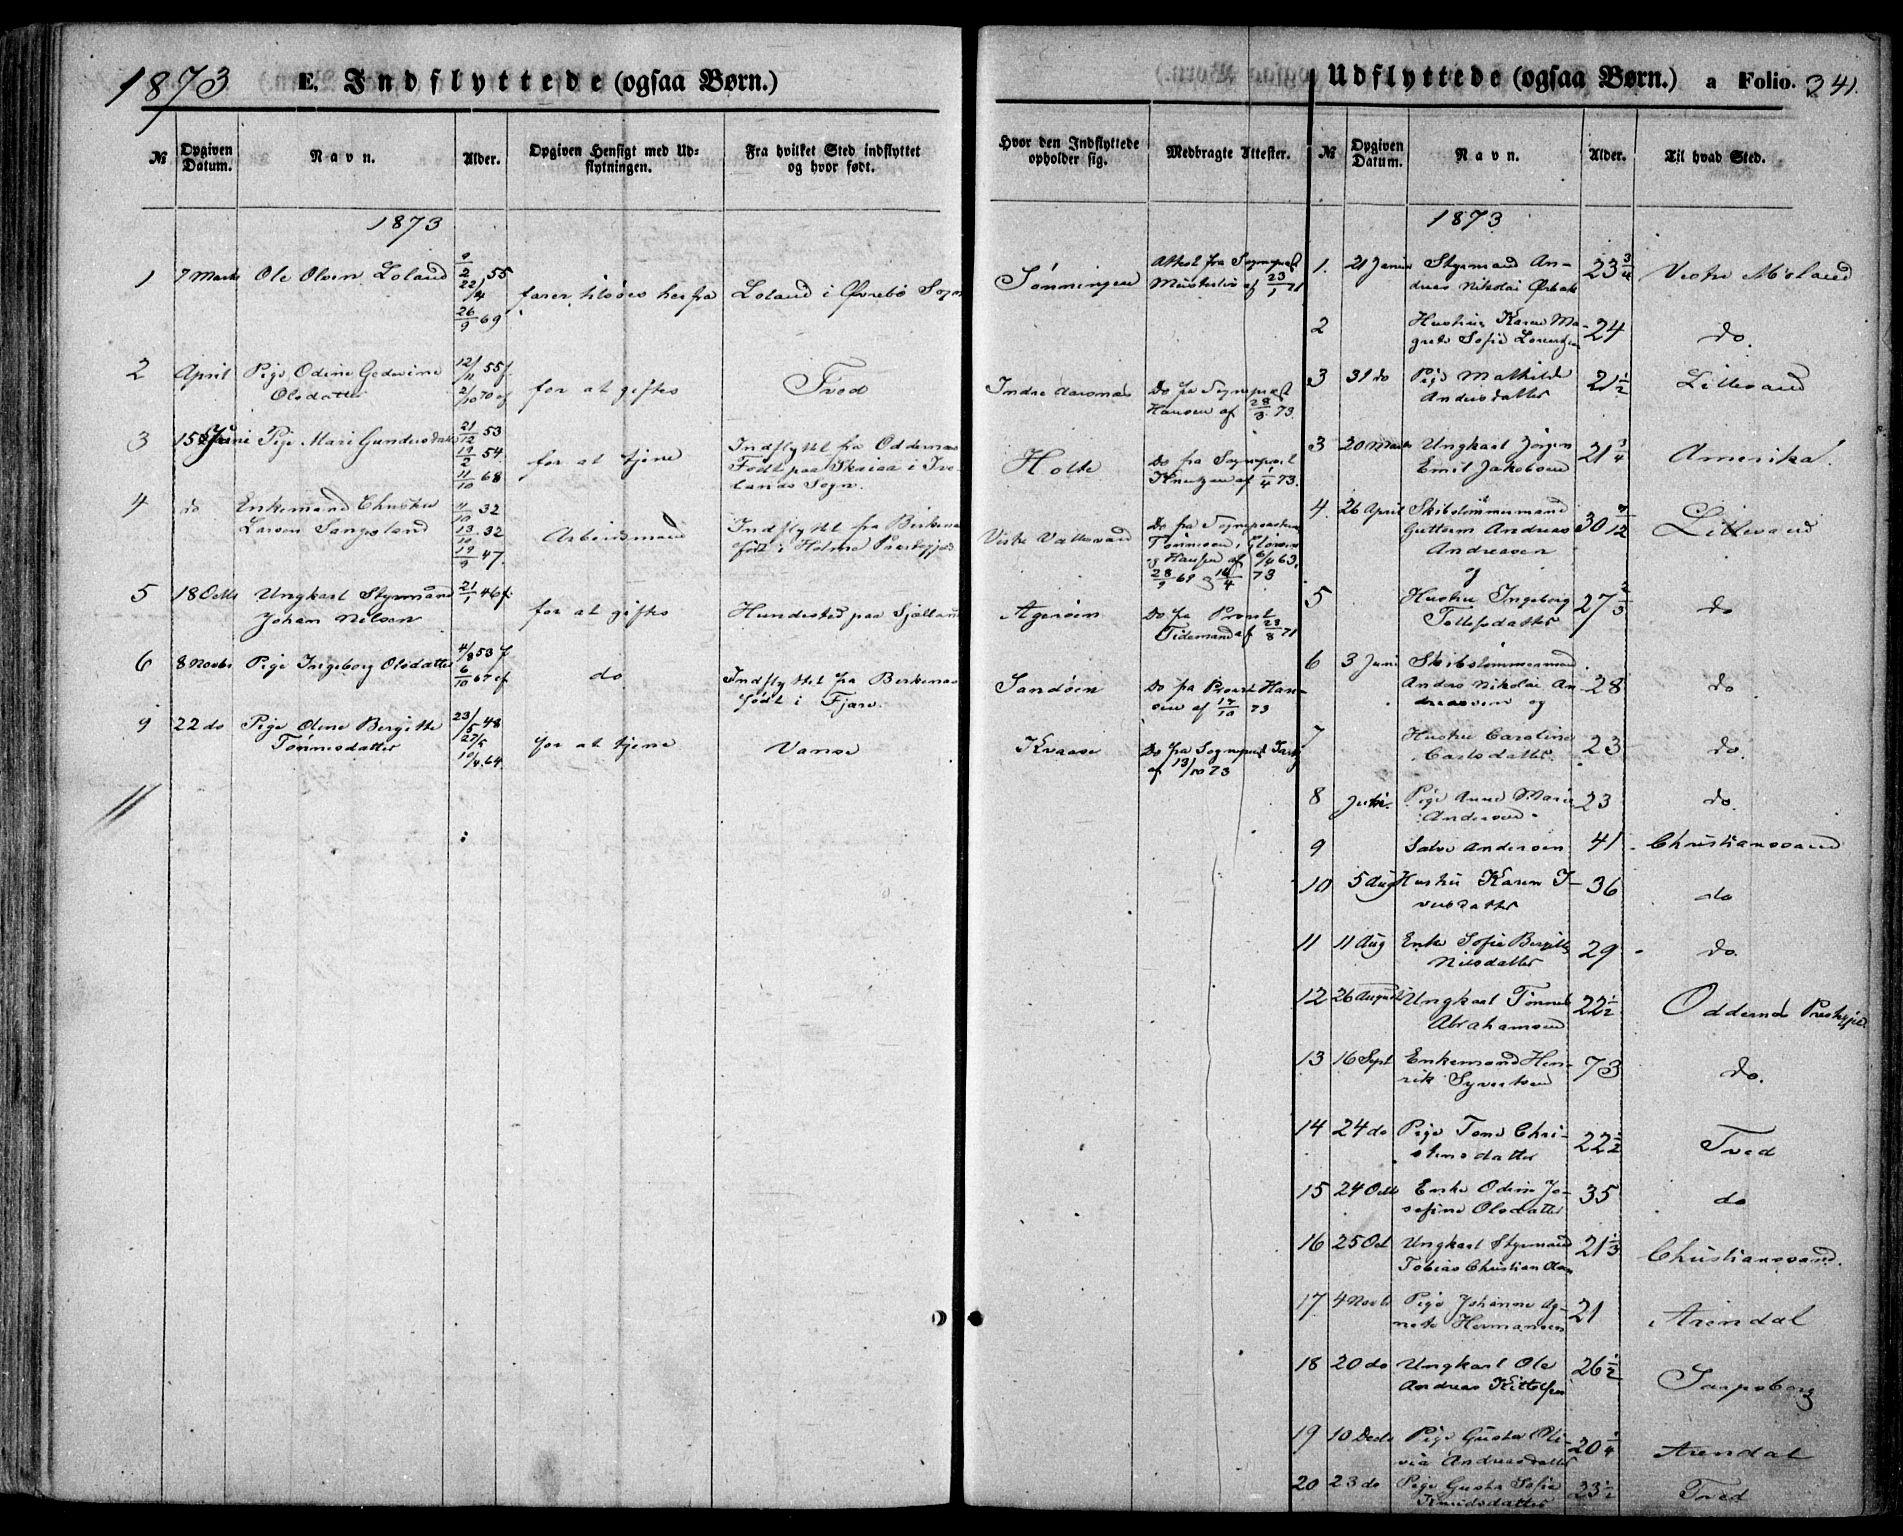 1873 E. Indflyttede (ogsaa Børn.)
№ Opgiven Datum. Navn. Alder. Opgiven Hensigt med Udflytningen. Fra hvilket Sted indflyttet og hvor født.
Hvor den Indflyttede opholder sig. Medbragte Attester.
1873
1 7 Marts Ole Olsen Loland 9/2 55 22/4 26/9 69 farer tilsøes herfra Loland i Øvrebø Sogn
Sønningen Attest fra Sognepræst af 23/1 71
2 April Pige Odine Gedevine Olsdatter 12/11 55 f. 2/10 70 cf for at giftes Tved
Indre Aarsnæs Do fra Sognepræst Hansen af 28/3 73.
3 15 Juni Pige Mari Gundersdatter 21/12 53 19/2 54. 11/10 68 for at tjene Indflyttet fra Oddernæs Født paa Skaiaa i Ivelands Sogn.
Holte Do fra Sognepræst Knutzen af 1/4 73.
4 do Enkemand Christen Larsen Sangesland 11/10 32 13/10 32 19/9 47. Arbeidsmand Indflyttet fra Birkenæs født i Holme Præstegjæld
Vestre Vallesvand Do fra Sognepræsterne Tønnesen i og Hansen af 6/4 63, 28/9 69 og 14/4 73
5 18 Octb Ungkarl Styrmand Johan Nilsen 21/1 46 f. for at giftes Hundested paa Sjælland
Agerøen Do fra Provst Tidemand af 23/8 71
6 8 Novbr Pige Ingeborg Olsdatter 4/8 53 f 6/10 67 cf do Indflyttet fra Birkenæs født i Fjære.
Sandøen Do fra Provst Hansen af 17/10 73
9 22 do Pige Oline Bergitte Tønnesdatter 23/5 48 27/5 10/4 64 for at tjene Vanse
Kvaase Do fra Sognepræst af 13/10 73
Udflyttede (ogsaa Børn.) a Folio. 341.
№ Opgiven Datum. Navn. Alder. Til hvad Sted.
1873
1. 21 Januar Styrmand Andreas Nikolai Ørbæk 23 3/4 Vestre Moland
2 Hustru Karen Magrete Sofie Lorentzen 24 do.
3 31 do Pige Mathilde Andersdatter 21 1/2 Lillesand
3 20 Marts Ungkarl Jørgen Emil Jakobsen 21 3/4 Amerika.
4. 26 April Skibstømmermand Guttorm Andreas Andreasen 30 7/12 Lillesand
og
5 Hustru Ingeborg Tellefsdatter 27 2/3 do
6 3 Juni Skibstømmermand Andreas Nikolai Andreassen og 28 do
7 Hustru Caroline Carlsdatter. 23 do.
8 Juni. Pige Anne Marie Andersen. 23 do.
9 Salve Andersen 41 Christianssand
10 5 Aug Hustru Karen Iversdatter 36 do
11 11 Aug Enke Sofie Bergitte Nilsdatter 29 do.
12 26 August Ungkarl Tønnes Abrahamsen 22 1/2 Oddernæs Præstegjæld
13 16 Sept Enkemand Henrik Syvertsen 73 do.
14 24 do Pige Tone Christensdatter 22 1/2 Tved
15 24 Octb Enke Odine Josefine Olsdatter 35 do
16 25 Oct Ungkarl Styrmand Tobias Christian Olsen 21 1/3 Christianssand.
17 4 Novb Pige Johanne Agnete Hermansen 21 Arendal
18 20 do Ungkarl Ole Andreas Kittelsen 26 1/2 Sarpsborg
19 10 Decb Pige Gusta Olivia Andreasdatter 20 1/4 Arendal
20 23 do Pige Gusta Sofie Knudsdatter 23 1/2 Tved